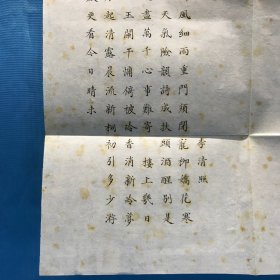 李清照
風細雨重門須閉寵柳嬌花寒
天氣險韻詩成扶頭酒醒別是
盡萬千心事難寄 樓上幾日
玉闌干慵倚被冷香消新夢
起清露晨流新桐初引多少游
更看今日晴未